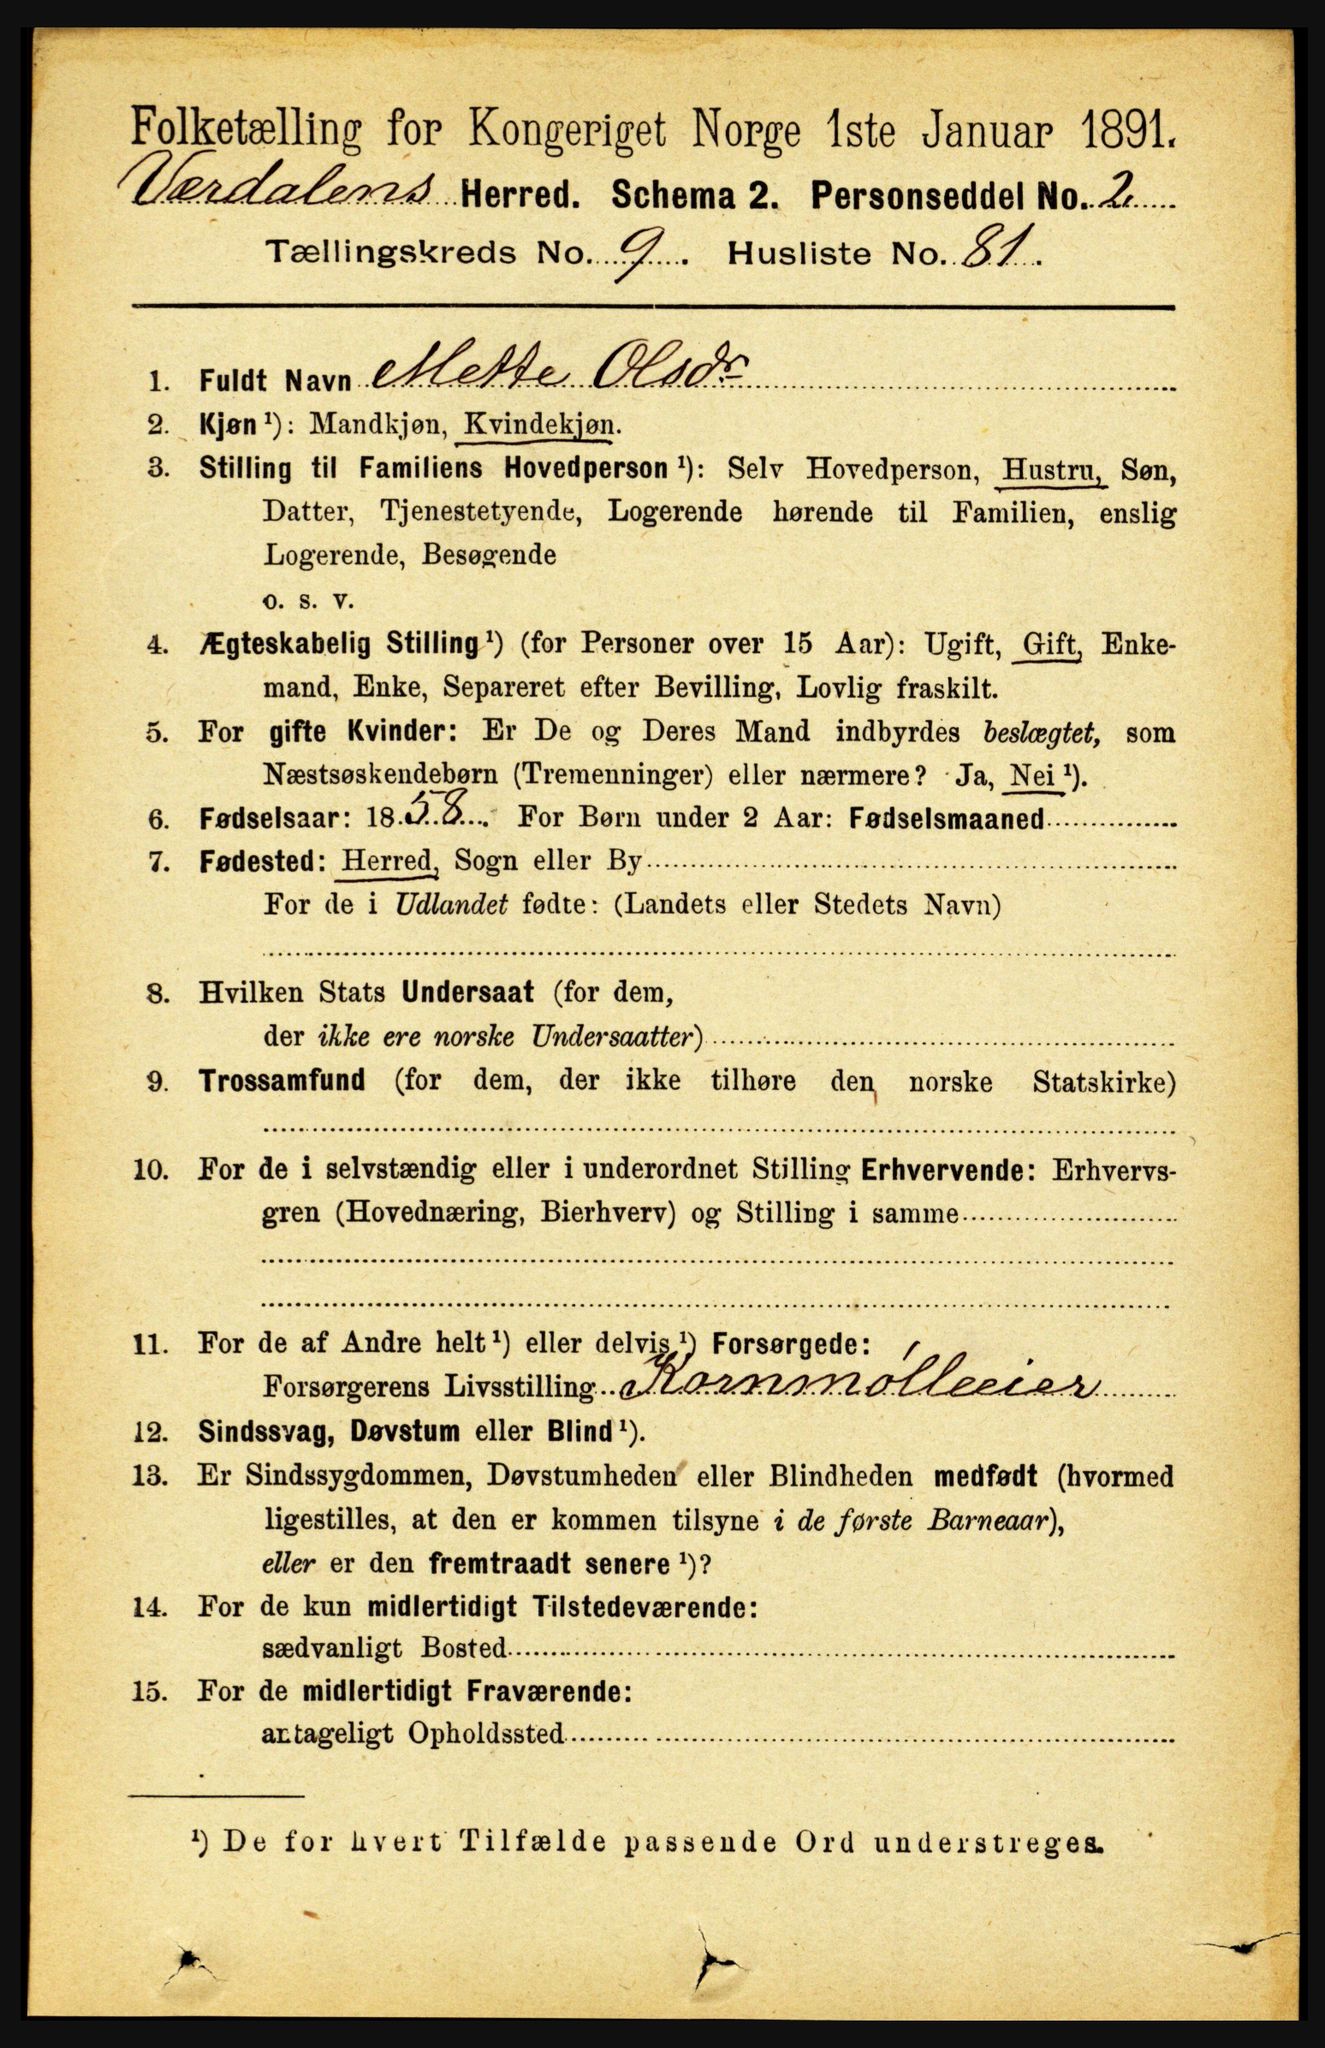 Folketælling for Kongeriget Norge 1ste Januar 1891.
Værdalens Herred. Schema 2. Personseddel No. 2
Tællingskreds No. 9. Husliste No. 81.
1. Fuldt Navn Mette Olsdr
2. Kjøn ¹): Mandkjøn, Kvindekjøn.
3. Stilling til Familiens Hovedperson ¹): Selv Hovedperson, Hustru, Søn,
Datter, Tjenestetyende, Logerende hørende til Familien, enslig
Logerende, Besøgende
o. s. v.
4. Ægteskabelig Stilling ¹) (for Personer over 15 Aar): Ugift, Gift, Enke-
mand, Enke, Separeret efter Bevilling, Lovlig fraskilt.
5. For gifte Kvinder: Er De og Deres Mand indbyrdes beslægtet, som
Næstsøskendebørn (Tremenninger) eller nærmere? Ja, Nei ¹).
6. Fødselsaar: 1858. For Børn under 2 Aar: Fødselsmaaned
7. Fødested: Herred, Sogn eller By
For de i Udlandet fødte: (Landets eller Stedets Navn)
8. Hvilken Stats Undersaat (for dem,
der ikke ere norske Undersaatter)
9. Trossamfund (for dem, der ikke tilhøre den norske Statskirke)
10. For de i selvstændig eller i underordnet Stilling Erhvervende: Erhvervs-
gren (Hovednæring, Bierhverv) og Stilling i samme
11. For de af Andre helt ¹) eller delvis ¹) Forsørgede:
Forsørgerens Livsstilling Kornmølleeier
12. Sindssvag, Døvstum eller Blind ¹).
13. Er Sindssygdommen, Døvstumheden eller Blindheden medfødt (hvormed
ligestilles, at den er kommen tilsyne i de første Barneaar),
eller er den fremtraadt senere ¹)?
14. For de kun midlertidigt Tilstedeværende:
sædvanligt Bosted
15. For de midlertidigt Fraværende:
antageligt Opholdssted
¹) De for hvert Tilfælde passende Ord understreges.